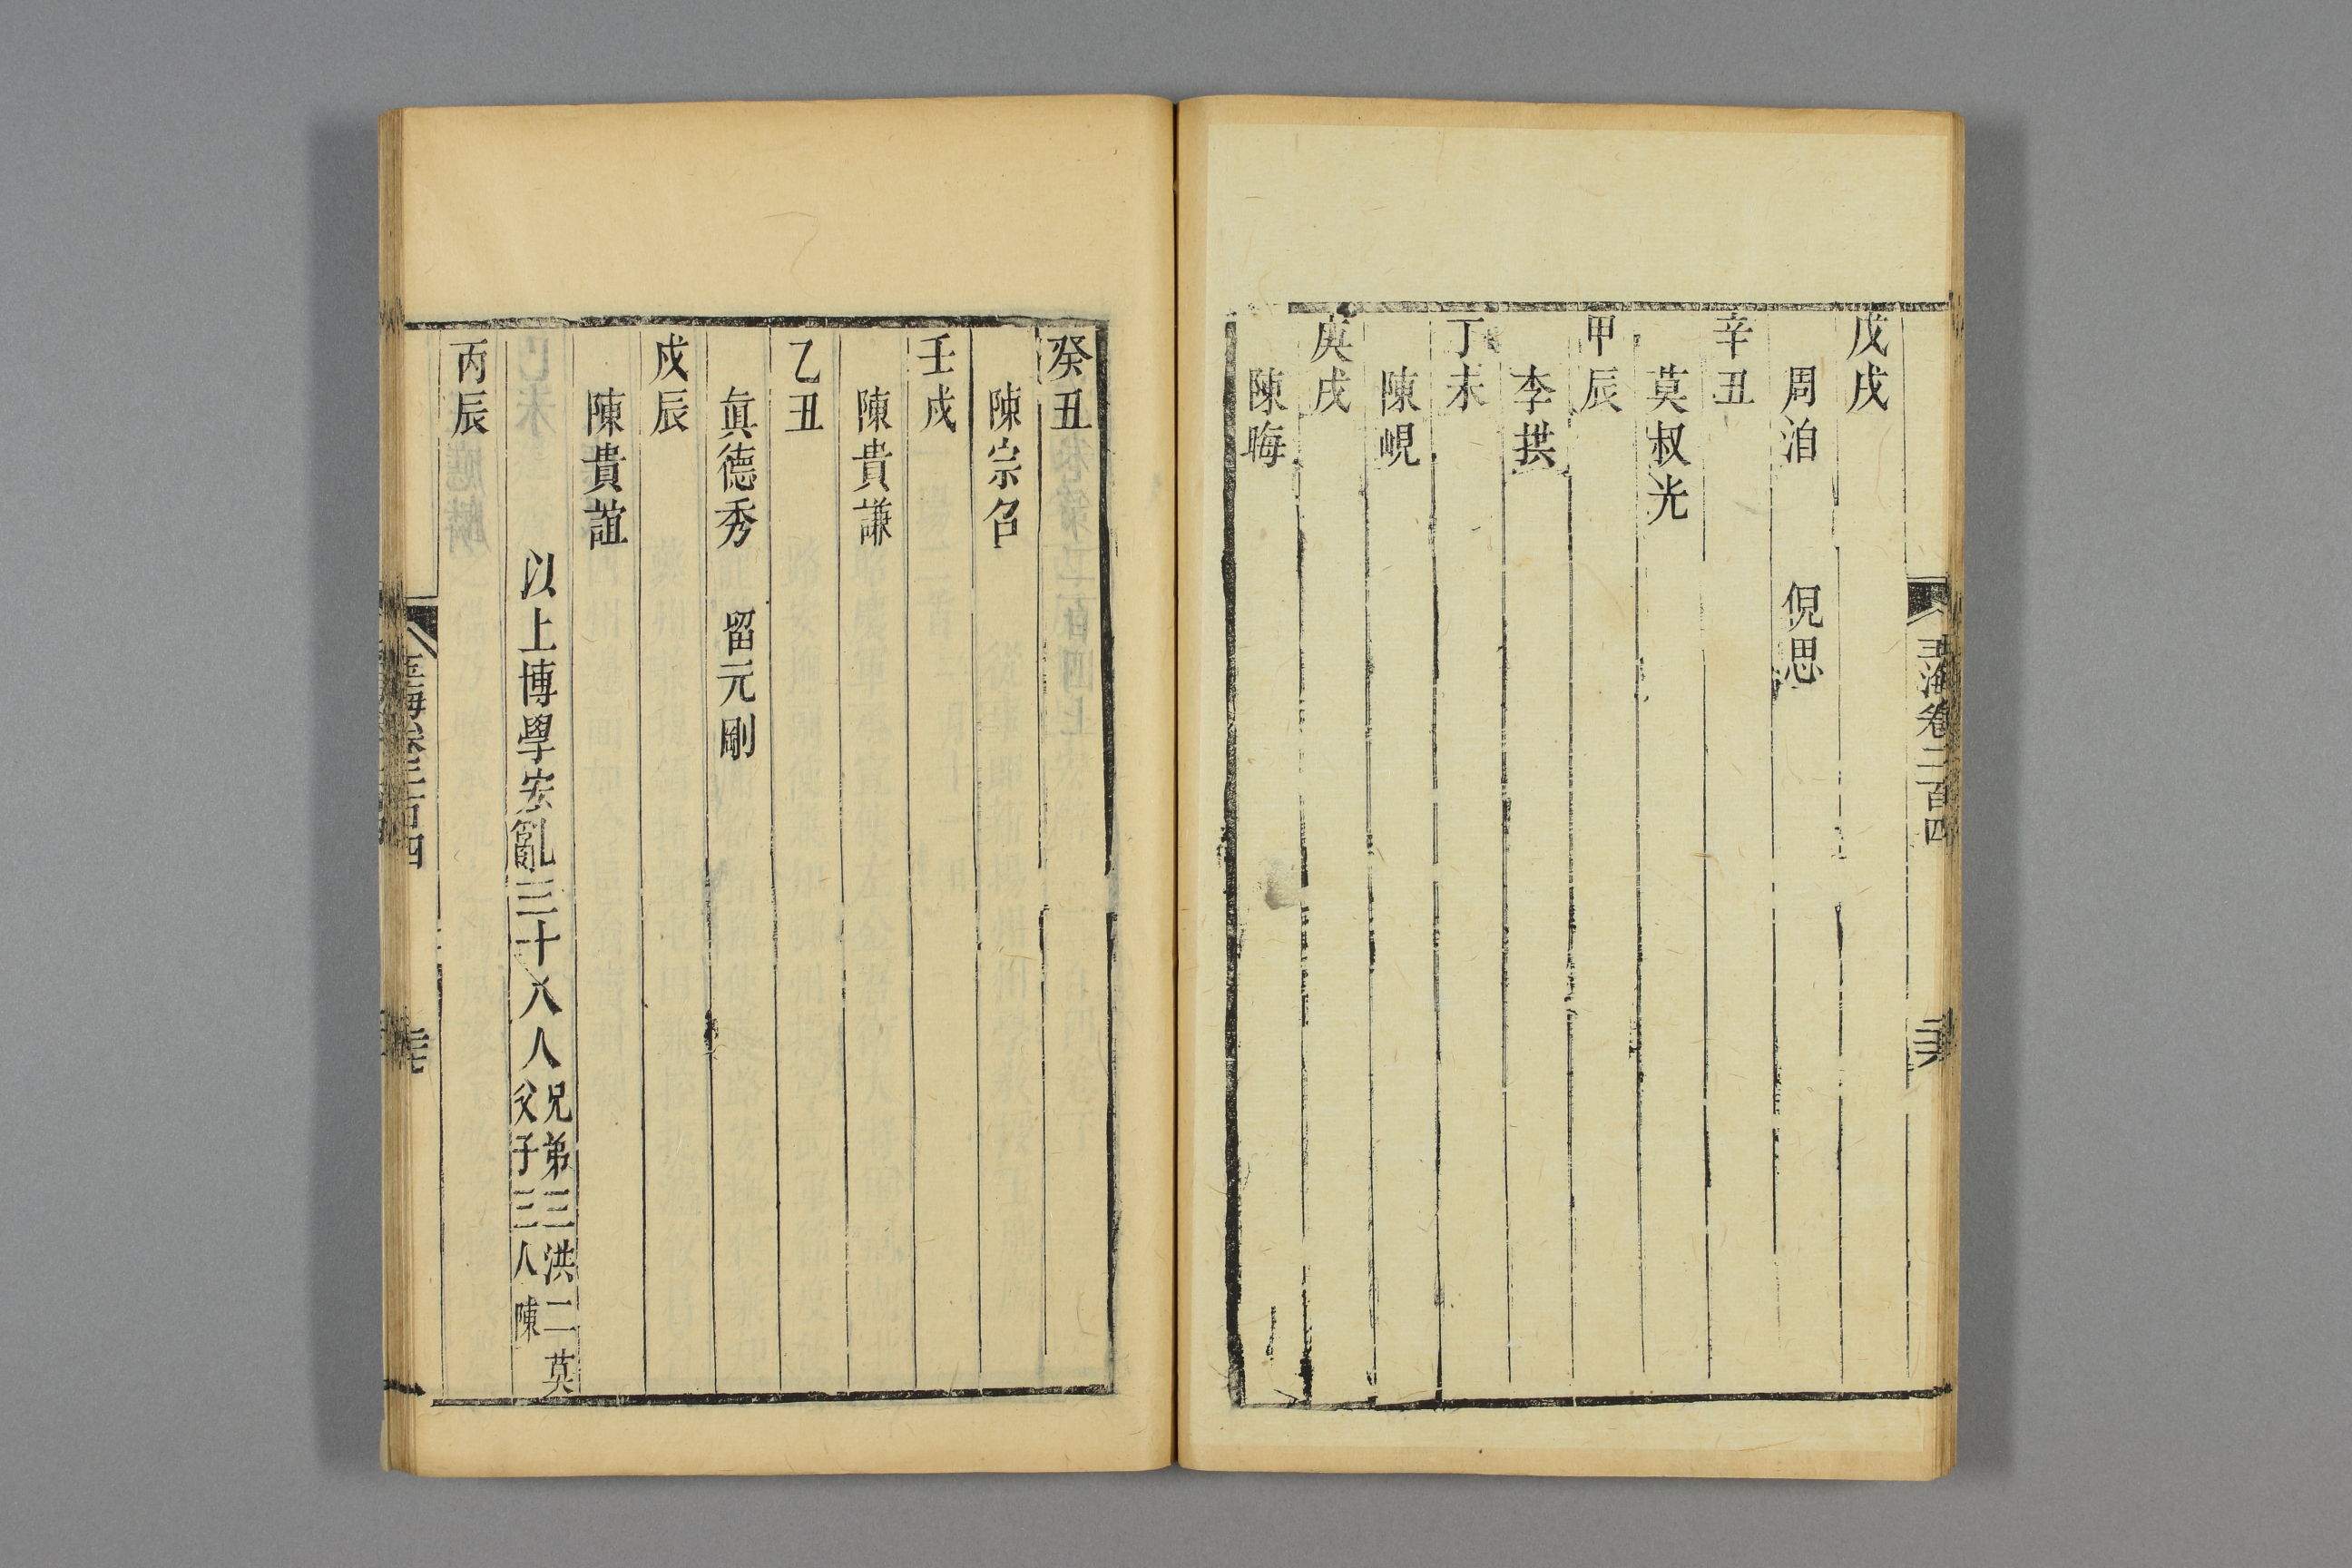 戊戌
周洎　倪思
辛丑
莫叔光
甲辰
李拱
丁未
陳峴
庚戌
陳晦
玉海卷二百四
癸丑
陳宗召
壬戌
陳貴謙
乙丑
眞德秀　留元剛
戊辰
陳貴誼
以上博學宏詞三十八人兄弟三洪二莫
父子三人陳
丙辰
玉海卷二百四